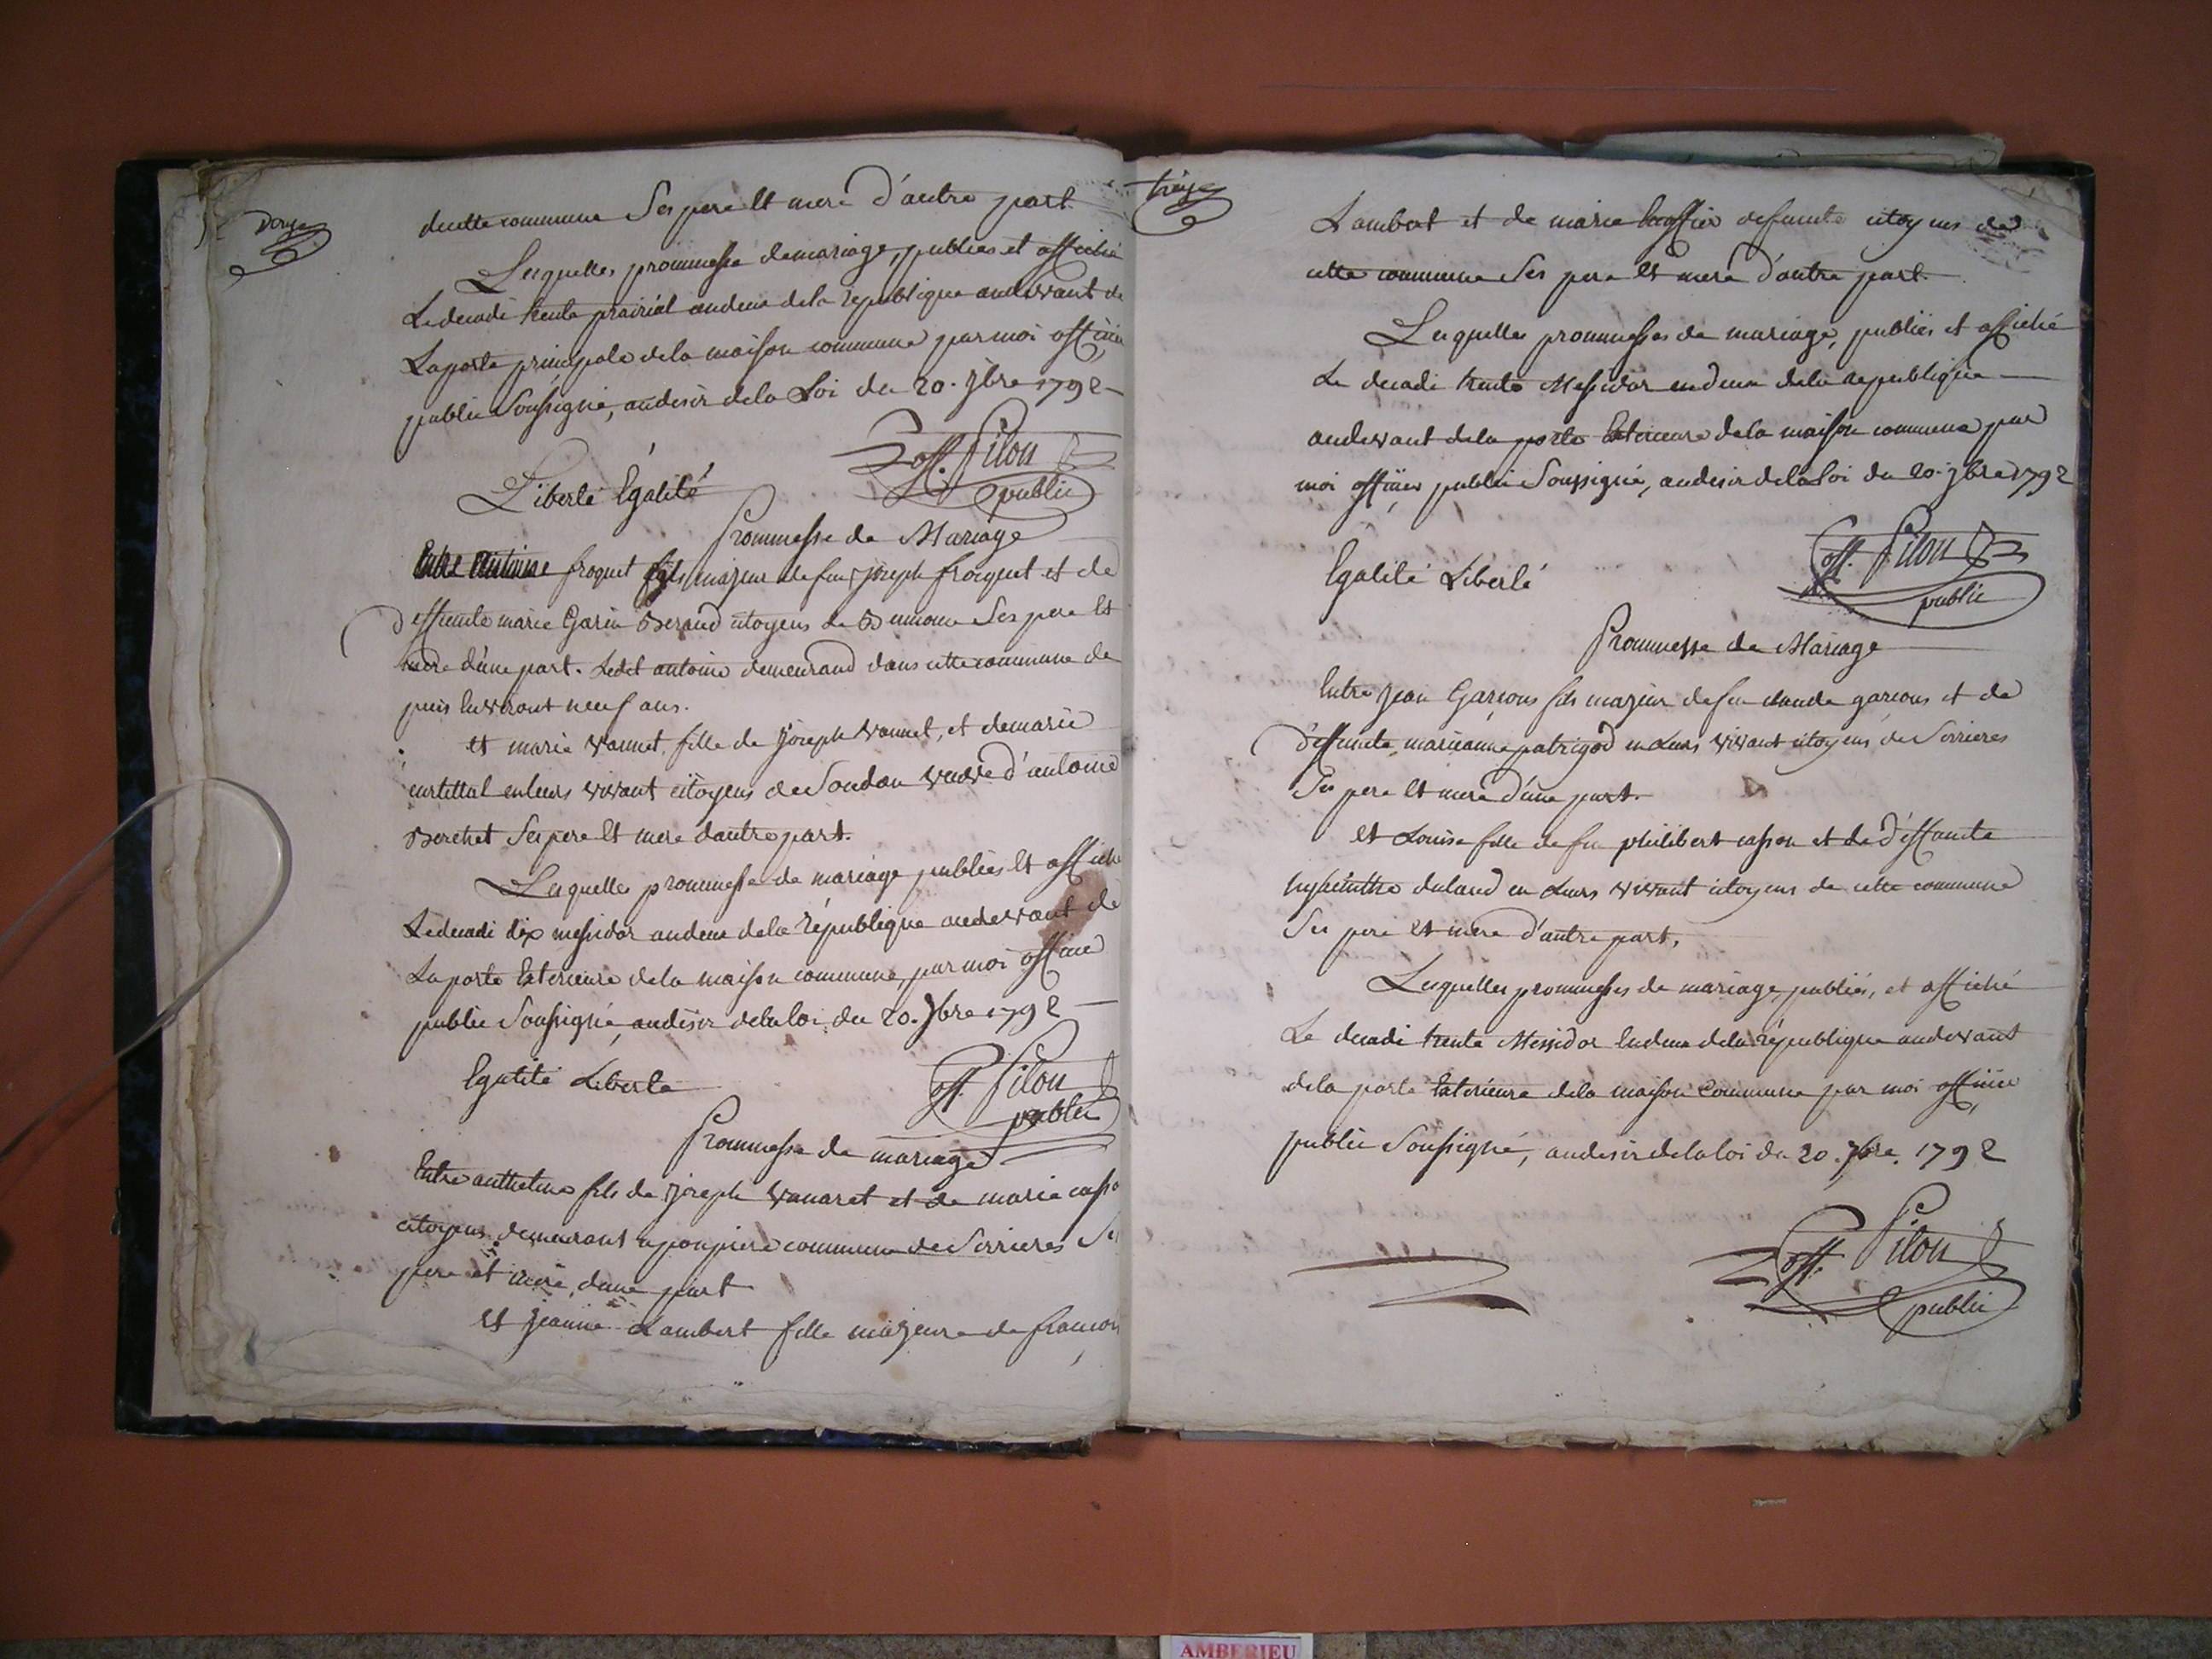 Douze
de cette commune Ses pere Et mere d'autre part
Lesquelles prommesse de mariage, publiées et affiché
Le decadi trente prairial an deux de la republique au devant de
La porte principale de la maison commune par moi officier
public Soussigné, au desir de la Loi du 20. 7bre 1792
off. Pilon
public
Liberté Egalité
Prommesse de Mariage
Entre Antoine froquet fils majeur de feu joseph froquet et de
deffunte marie Garin Beraud citoyens de Ses pere Et
mere d'une part. Ledit antoine demeurand dans cette commune de
puis Environt neuf ans.
et marie vannet, fille de joseph vannet, et de marie
en leurs vivant citoyens de Soudon veuve d'antoine
Berchet Ses pere Et mere d'autre part.
Lesquelles prommesse de mariage publiées Et affiché
Le decadi dix messidor an deux de la république au devant de
La porte Exterieure de la maison commune, par moi officier
public Soussigné, au desir de la loi, du 20. 7bre 1792
Egalité Liberté
off. Pilon
public
Prommesse de mariage
Entre anthelme fils de joseph vanaret et de marie
citoyens demeurant a commune de Serrieres
pere et mere, d'une part
Et jeanne Lambert fille majeure de francois
treize
Lambert et de marie defunte citoyens de
cette commune Ses pere Et mere d'autre part.
Lesquelles prommesses de mariage, publiées et affiché
Le decadi trente Messidor an deux de la republique
au devant de la porte Exterieure de la maison commune par
moi officier public Soussigné, au desir de la loi du 20. 7bre 1792
Egalité Liberté
off. Pilon
public
Prommesse de Mariage
Entre jean Garçons fils majeur de feu claude garçons et de
deffunte marieanne patrigod en Leurs vivant citoyens de Serrieres
Ses pere Et mere d'une part.
et Louise fille de feu philibert casson et de deffunte
dulaud en Leurs vivant citoyens de cette commune
Ses pere Et mere d'autre part,
Lesquelles prommesses de mariage publiées, et affiché
Le decadi trente Messidor En deux de la république au devant
de la porte Exterieure de la maison commune par moi officier
public Soussigné, au desir de la loi du 20. 7bre. 1792
off. Pilon
public
AMBERIEU